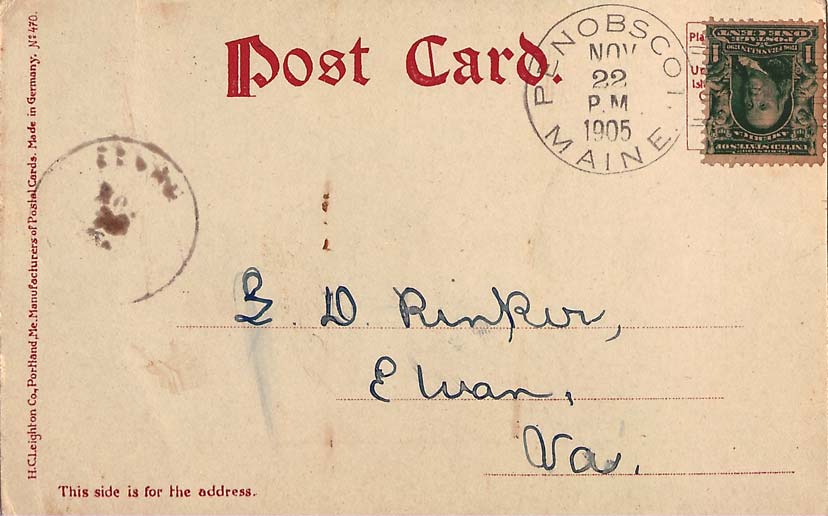 Post Card.
PENOBSCOT
NOV
22
P.M
1905
MAINE.
Pla
U
Isl
POSTAGE
ONE CENT
1 1
SERIES 1902
UNITED STATES OF
AMERICA
H.C. Leighton Co., Portland, Me. Manufacturers of Postal Cards. Made in Germany. No 470.
D. Rinker,
Elwan,
Va.
This side is for the address.